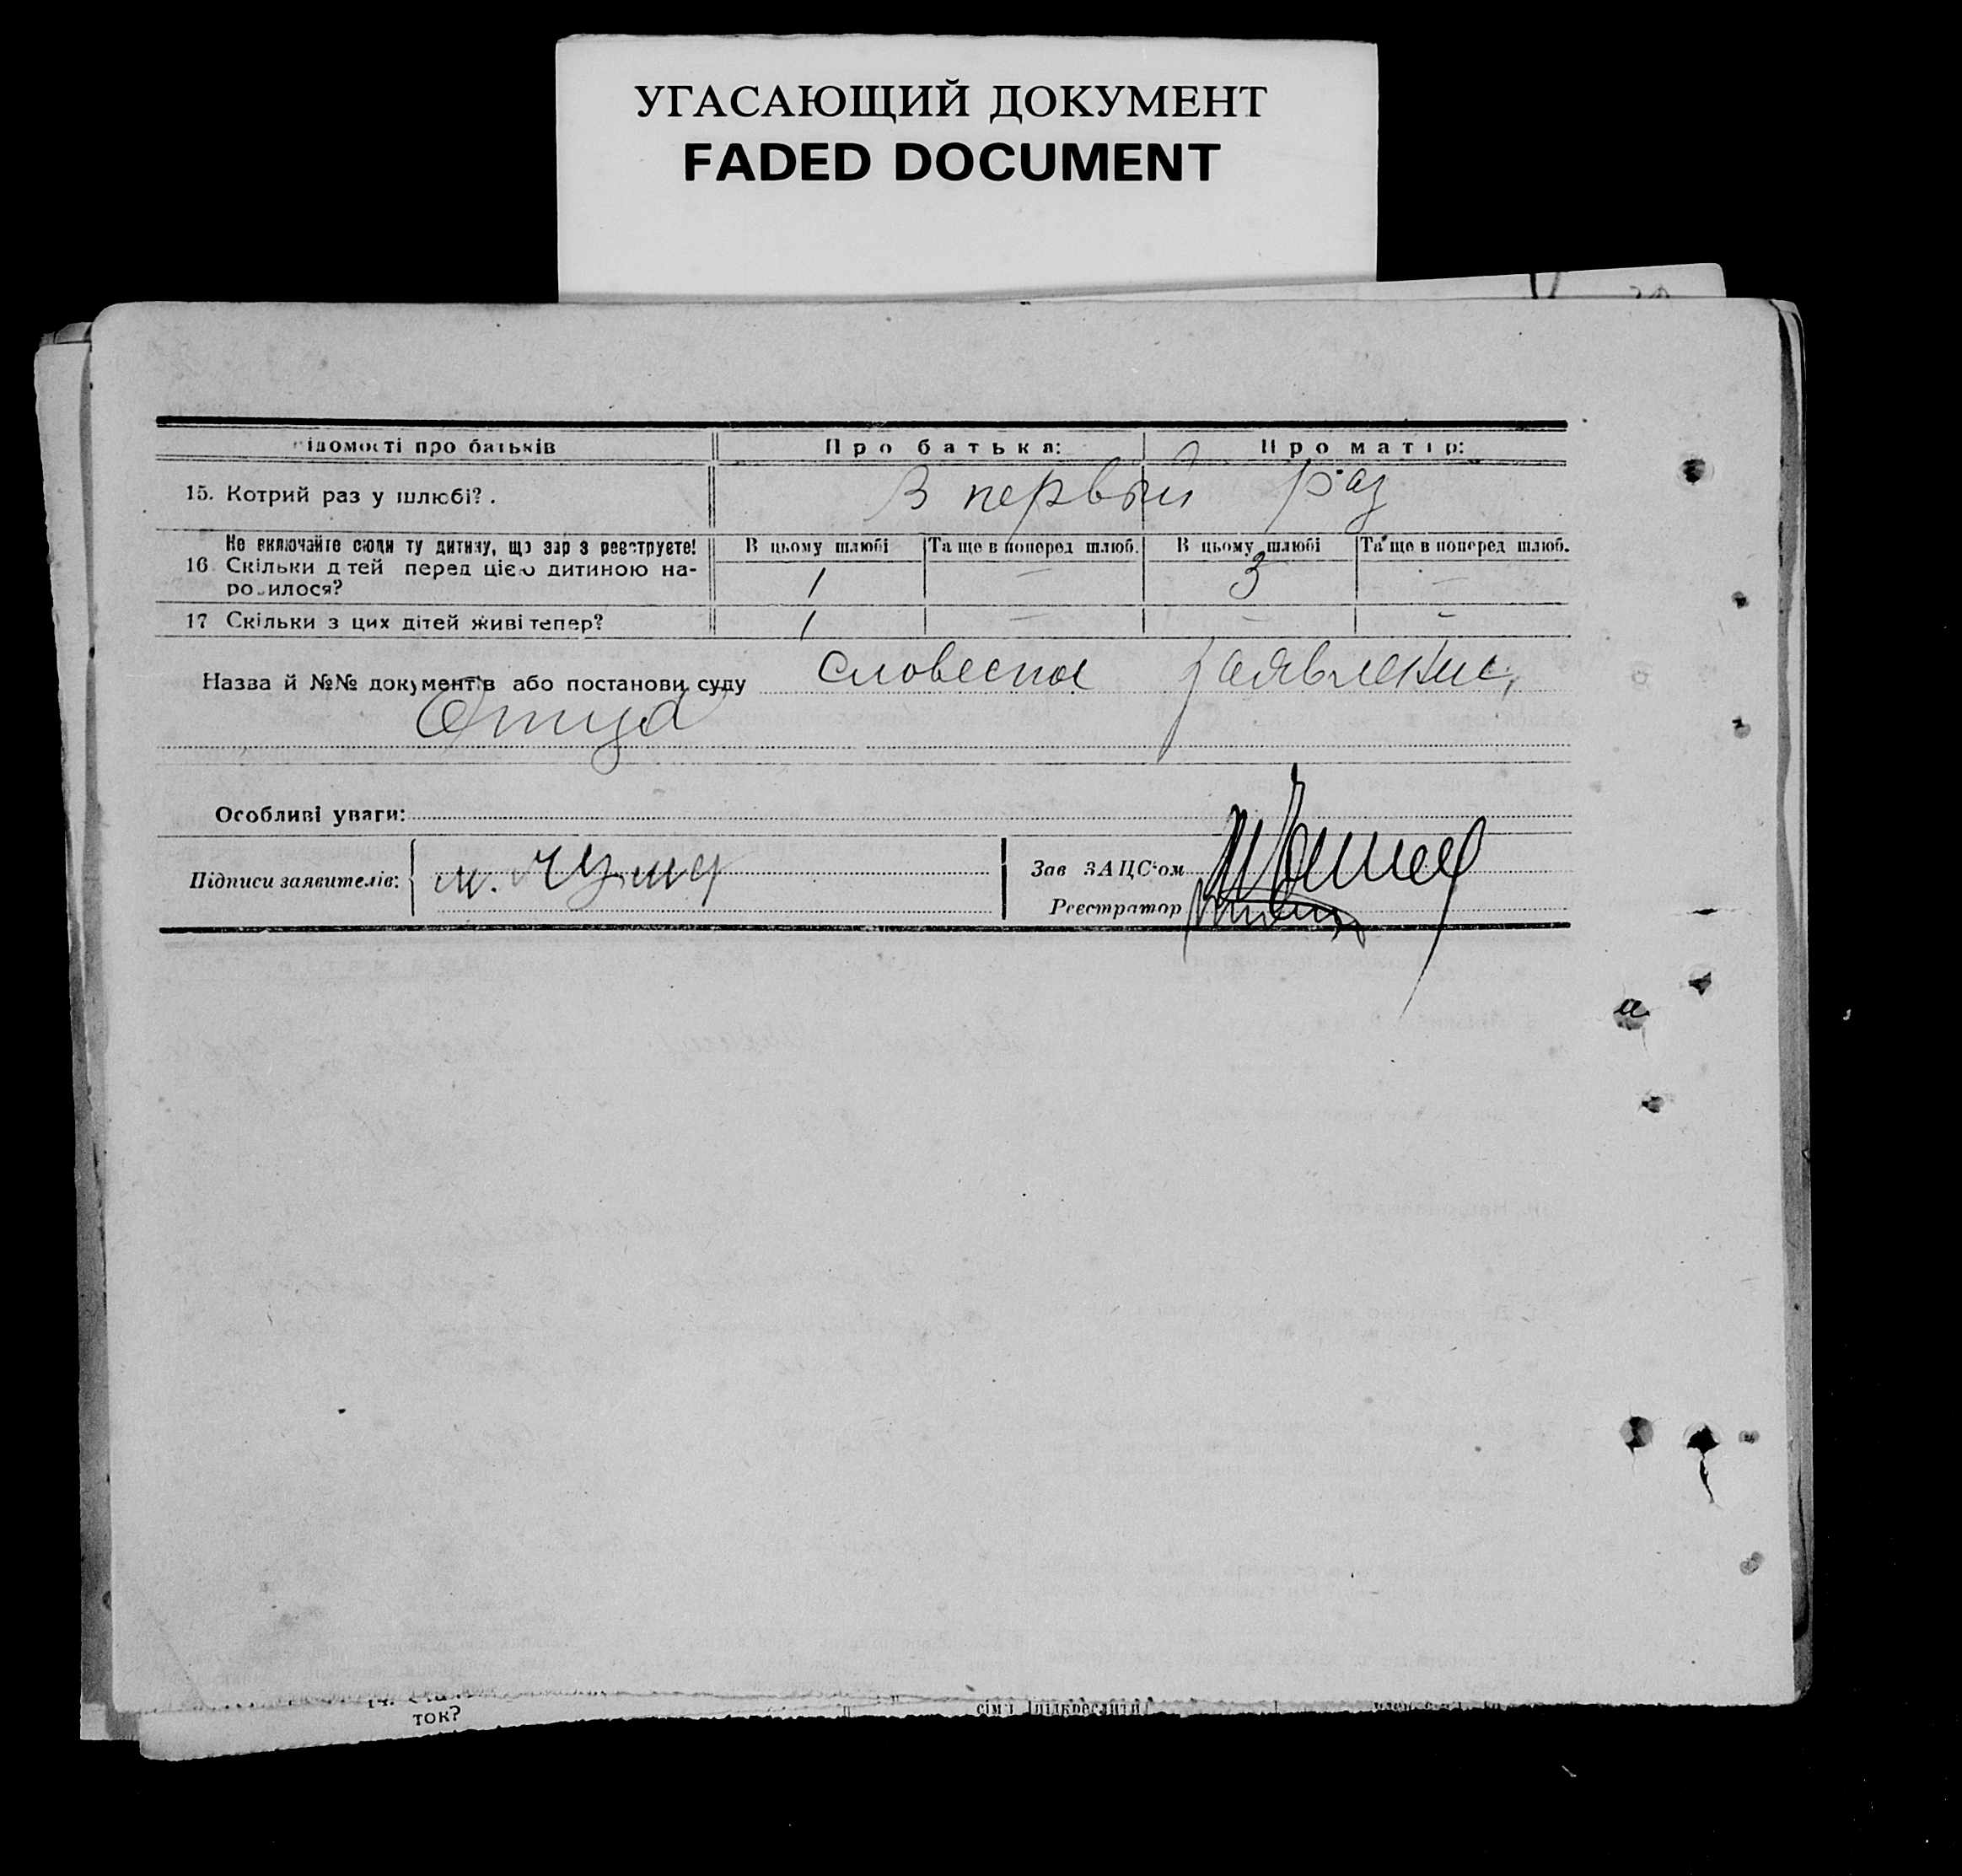 УГАСАЮЩИЙ ДОКУМЕНТ
FADED DOCUMENT
ідомості про батьків Про батька: Про матір:
15. Котрий раз у шлюбі? . В первый раз
Не включайте сюди ту дитину, що зар з реєструєте! В цьому шлюбі Та ще в поперед шлюб. В цьому шлюбі Та ще в поперед шлюб.
16. Скільки д тей перед цією дитиною на-
ро илося? 1 — 3 —
17 Скільки з цих дітей живі тепер? 1 — — -
Назва й №№ документів або постанови суду словесное заявление,
Отца
Особливі уваги:
Підписи заявителів: м.
Зав ЗАЦС'ом
Реєстратор
ток?
сім'ї (підкреслити)